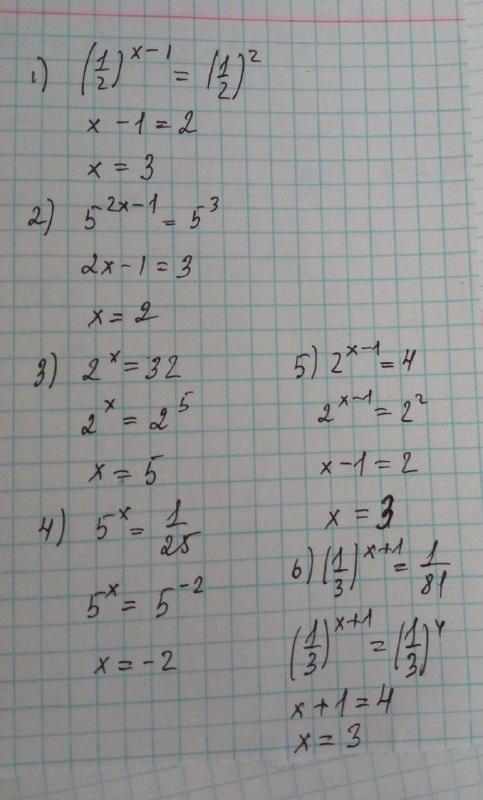 1) (1/2)^(x-1) = (1/2)^2
x - 1 = 2
x = 3
2) 5^(2x-1) = 5^3
2x - 1 = 3
x = 2
3) 2^x = 32
2^x = 2^5
x = 5
4) 5^x = 1/25
5^x = 5^(-2)
x = -2
5) 2^(x-1) = 4
2^(x-1) = 2^2
x - 1 = 2
x = 3
6) (1/3)^(x+1) = 1/81
(1/3)^(x+1) = (1/3)^4
x + 1 = 4
x = 3